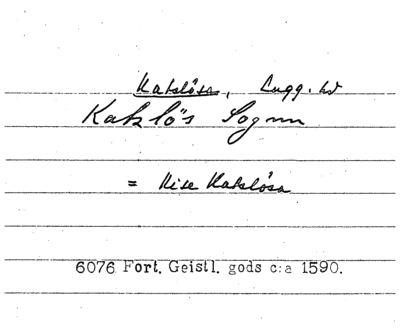 Katslösa, Lugg. hd
Katzlös Sognn
= Kise Katslösa
6076 Fort. Geistl. gods c:a 1590.